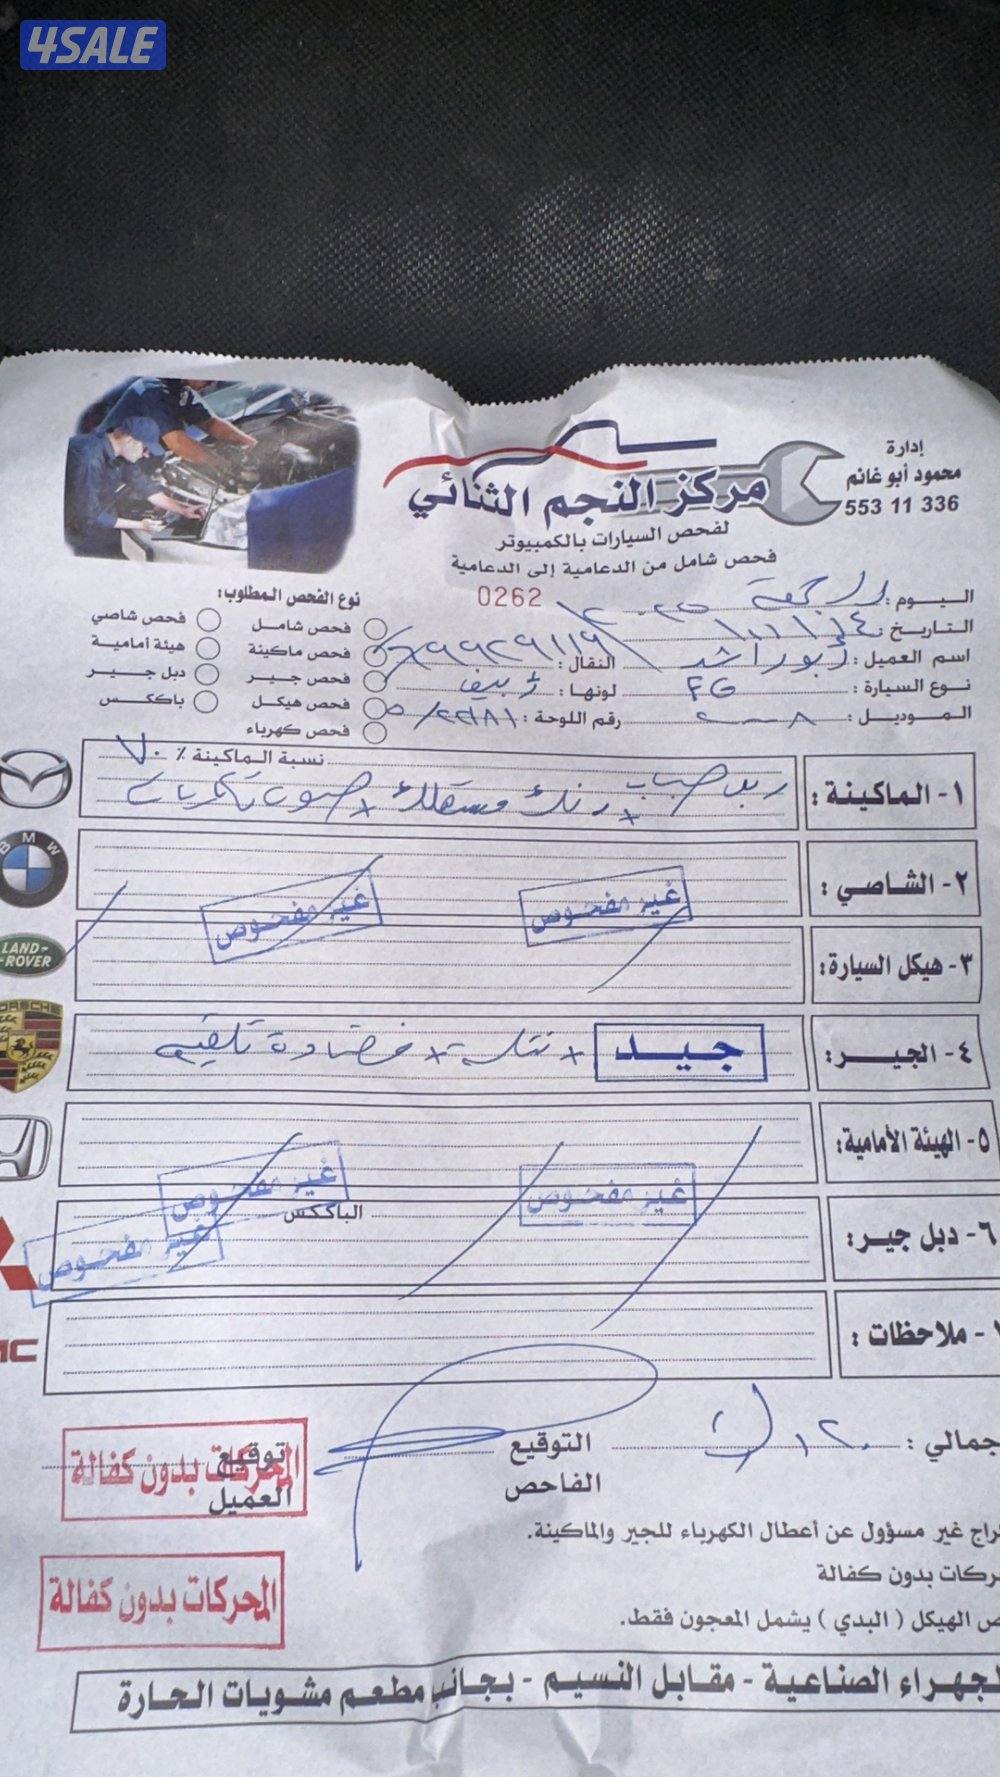 4SALE
إدارة
محمود أبو غانم
553 11 336
مركز النجم الثنائي
لفحص السيارات بالكمبيوتر
فحص شامل من الدعامية إلى الدعامية
0262
نوع الفحص المطلوب:
فحص شامل
فحص شاصي
فحص ماكينة
هيئة أمامية
فحص جير
دبل جيير
فحص هيكل
باككس
فحص كهرباء
اليوم: الجمعة
التاريخ:
اسم العميل: أبو راشد النقال:
نوع السيارة: FG لونها: أبيض
الموديل: ٢٠٠٨ رقم اللوحة:
١- الماكينة: نسبة الماكينة ٪ ٧٠
٢- الشاصي:
غير مفحوص
غير مفحوص
٣- هيكل السيارة:
LAND-ROVER
BMW
PORSCHE
٤- الجير: جيد
٥- الهيئة الأمامية:
غير مفحوص
غير مفحوص
الباككس
غير مفحوص
٦- دبل جير:
ملاحظات:
جمالي:
التوقيع
الفاحص
توقيع
العميل
المحركات بدون كفالة
راج غير مسؤول عن أعطال الكهرباء للجير والماكينة.
ركات بدون كفالة
المحركات بدون كفالة
ص الهيكل ( البدي ) يشمل المعجون فقط.
لجهراء الصناعية - مقابل النسيم - بجانب مطعم مشويات الحارة